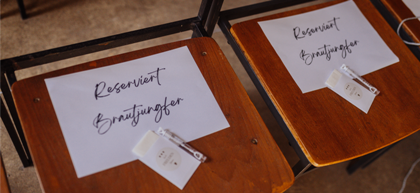 Reserviert
Brautjungfer
Reserviert
Brautjungfer